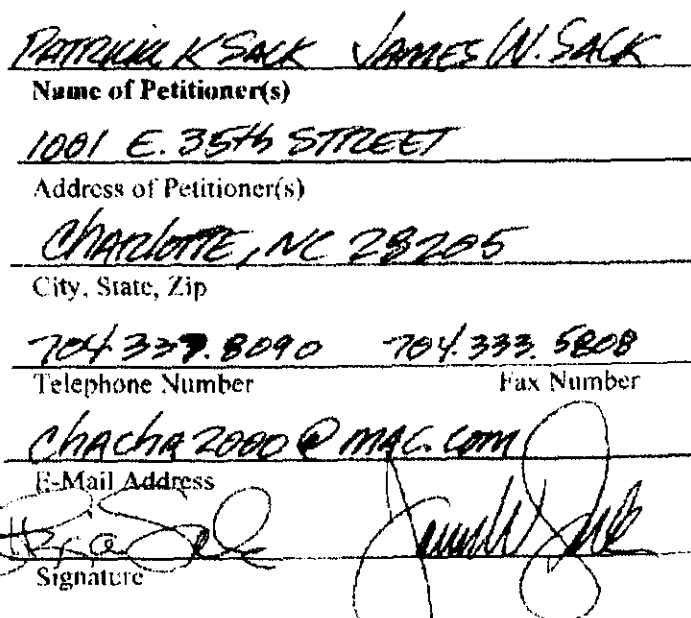 PATRICIA K SACK JAMES W. SACK
Name of Petitioner(s)
1001 E. 35th STREET
Address of Petitioner(s)
CHARLOTTE, NC 28205
City, State, Zip
704.337.8090 704.333.5808
Telephone Number Fax Number
chacha2000@mac.com
E-Mail Address
Signature